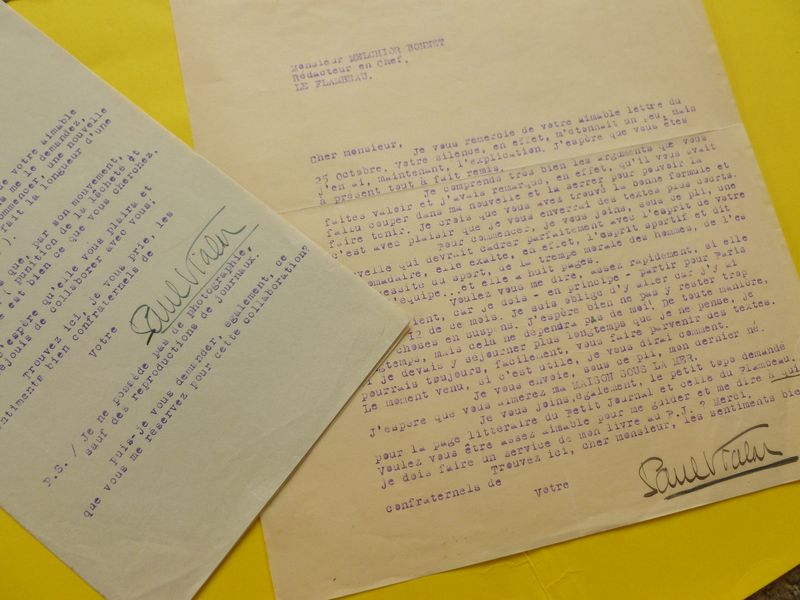 de votre aimable
me le demandez,
commencer, une nouvelle
fait la longueur d'une
).
que, par son mouvement,
punition de la lâcheté et
est bien ce que vous cherchez.
espère qu'elle vous plaira et
réjouis de collaborer avec vous.
Trouvez ici, je vous prie, les
sentiments bien confraternels de
votre
Paul Vialar
P.S. / Je ne possède pas de photographie,
sauf des reproductions de journaux.
Puis-je vous demander, également, ce
que vous me réservez pour cette collaboration?
Monsieur MELCHIOR BONNET
Rédacteur en Chef.
LE FLAMBEAU.
Cher monsieur,
Je vous remercie de votre aimable lettre du
25 Octobre. Votre silence, en effet, m'étonnait un peu, mais
j'en ai, maintenant, l'explication. J'espère que vous êtes
à présent tout à fait remis.
Je comprends très bien les arguments que vous
faites valoir et j'avais remarqué, en effet, qu'il vous avait
fallu couper dans ma nouvelle et la serrer pour pouvoir la
faire tenir. Je crois que vous avez trouvé la bonne formule et
c'est avec plaisir que je vous enverrai des textes plus courts.
Pour commencer, je vous joins, sous ce pli, une
nouvelle qui devrait cadrer parfaitement avec l'esprit de votre
hebdomadaire, elle exalte, en effet, l'esprit sportif et dit
nécessité du sport, de la trempe morale des hommes, de l'es
d'équipe...et elle a huit pages.
Voulez vous me dire, assez rapidement, si elle
convient, car je dois - en principe - partir pour Paris
12 de ce mois. Je suis obligé d'y aller car j'y ai
choses en suspens. J'espère bien ne pas y rester trop
longtemps, mais cela ne dépendra pas de moi, de toute manière,
si je devais y séjourner plus longtemps que je ne pense, je
pourrais toujours, facilement, vous faire parvenir des textes.
Le moment venu, si c'est utile, je vous dirai comment.
Je vous envoie, sous ce pli, mon dernier né.
J'espère que vous aimerez ma MAISON SOUS LA MER.
Je vous joins, également, le petit topo demandé
pour la page littéraire du Petit Journal et celle du Flambeau.
Voulez vous être assez aimable pour me guider et me dire à qui
je dois faire un service de mon livre au P.J. ? Merci.
Trouvez ici, cher monsieur, les sentiments bien
confraternels de
Votre
Paul Vialar